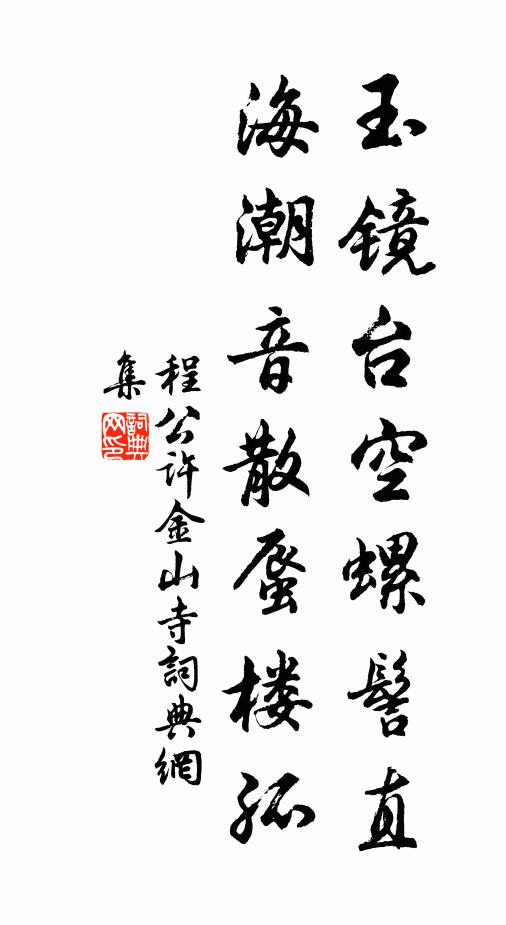 玉镜台空螺髻直
海潮音散蜃楼孤
程公许金山寺詞典網
集
詞典
网印